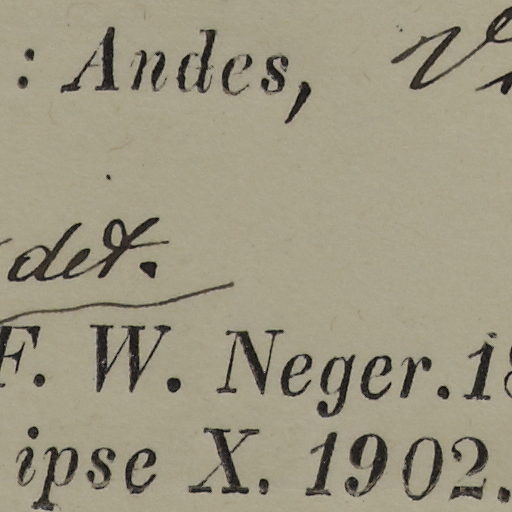 : Andes,
det.
F. W. Neger. 18
ipse X. 1902.